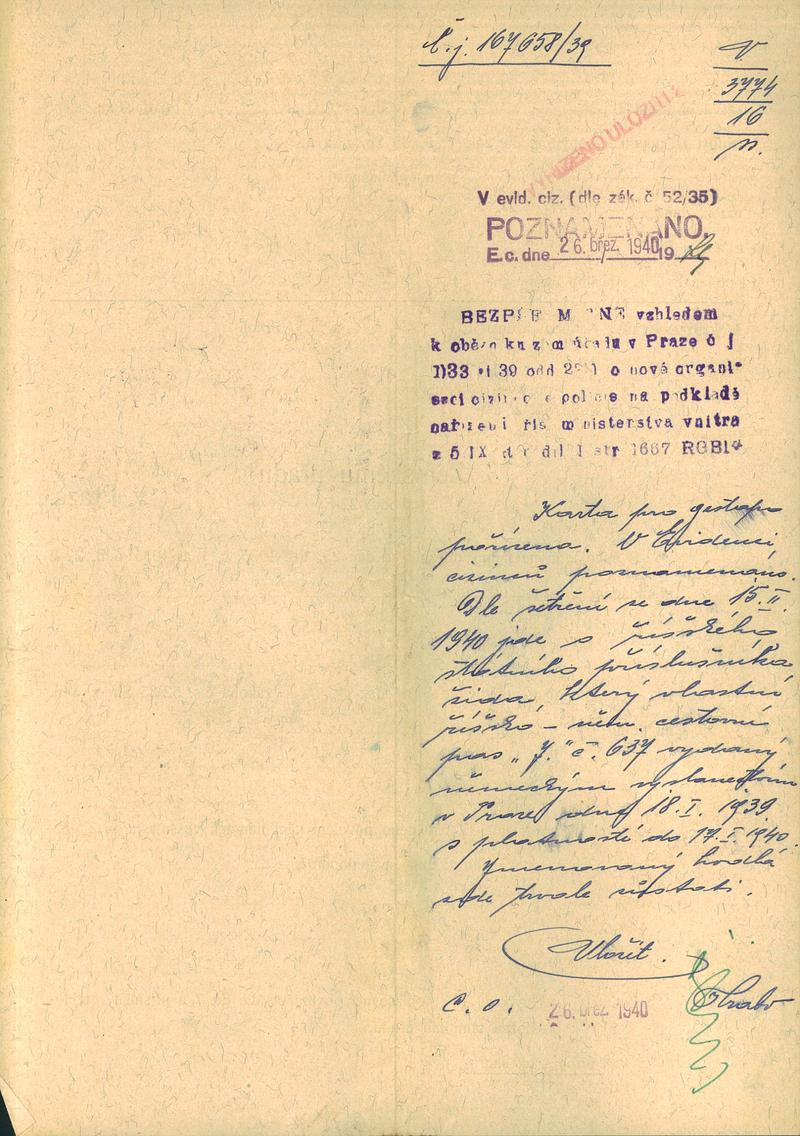 Č.j. 167658/39
V
3774
16
VYŘÍZENO ULOŽITI
V evid. ciz. (dle zák. č 52/35)
POZNAMENÁNO.
E.c. dne 26. břez. 1940 19
vzhledem
k v Praze č j
39 odd o nové organi
na podkladě
ministerstva vnitra
z 5 IX str 1667 RGBl
Karta pro gestapo
pořízena. V Evidenci
cizinců poznamenáno.
Dle šetření ze dne 15.II.
1940 jde o říšského
státního příslušníka
žida, který vlastní
říšsko – něm. cestovní
pas „J." č. 637 vydaný
německým vyslanectvím
v Praze dne 18.I. 1939
s platností do 17.I. 1940.
Jmenovaný hodlá
zde trvale zůstati.
Uložit.
C. O. 26. břez. 1940